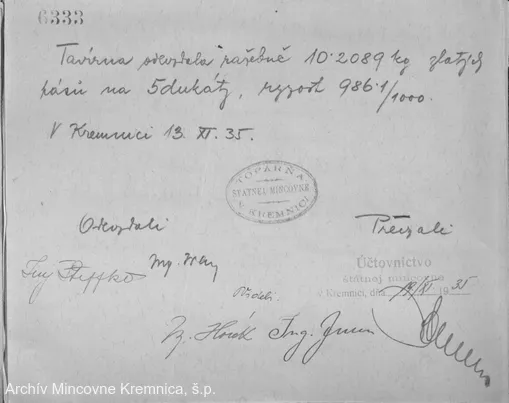 6333
Tavírna odevzdala ražebně 10·2089 kg zlatých
pásů na 5dukáty, ryzost 986·1/1000.
V Kremnici 13. XI. 35.
TOPÁRŇA
ŠTÁTNEJ MINCOVNE
V KREMNICI
Odevzdali
Převzali
Ing. Steffko
Ing.
Účtovníctvo
štátnej mincovne
v Kremnici, dňa 14/XI 1935
Horák Ing.
Archív Mincovne Kremnica, š.p.